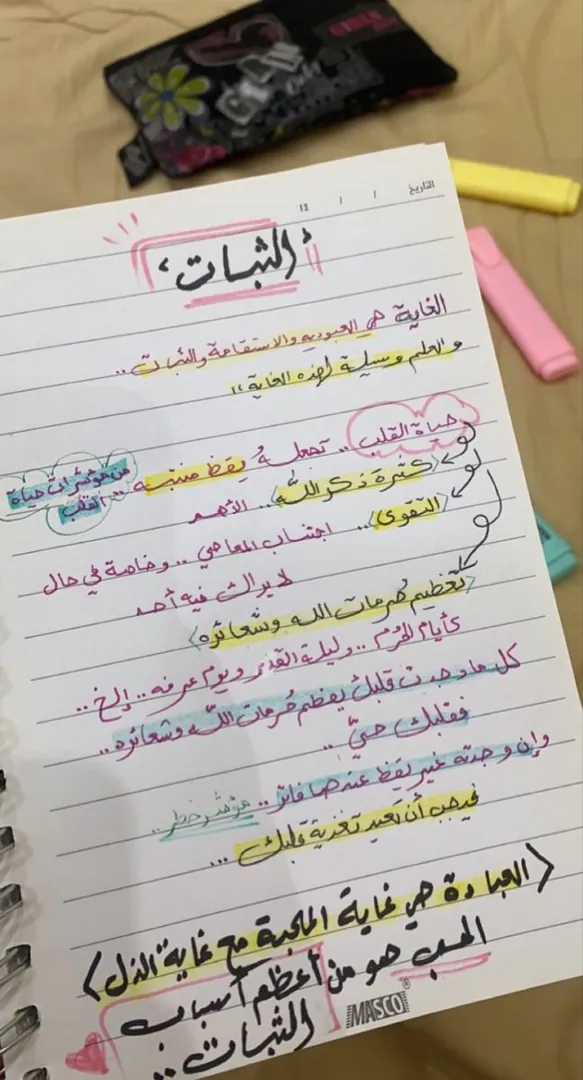 GIRLS
GIRL
التاريخ / / ١٤
الثبات،
الغاية هي العبودية والاستقامة والثبات ..
والعلم وسيلة لهذه الغاية،،
حياة القلب .. تجعله يقظ منتبه ..
من مؤشرات حياة
القلب
<كثرة ذكر الله> .. الأهم
<التقوى> .. اجتناب المعاصي .. وخاصة في حال
لا يراك فيه أحد
<تعظيم حُرمات الله وشعائره>
كأيام الحُرُم .. وليلة القدر ويوم عرفه .. إلخ ..
كل ما وجدت قلبك يعظم حُرمات الله وشعائره ..
فقلبك حيّ ..
وإن وجدته غير يقظ عندها فاتر .. مؤشر خطر ..
فيجب أن تعيد تغذية قلبك ...
<العبادة هي غاية المحبة مع غاية الذل>
الحب هو من أعظم أسباب
الثبات ..
MASCO